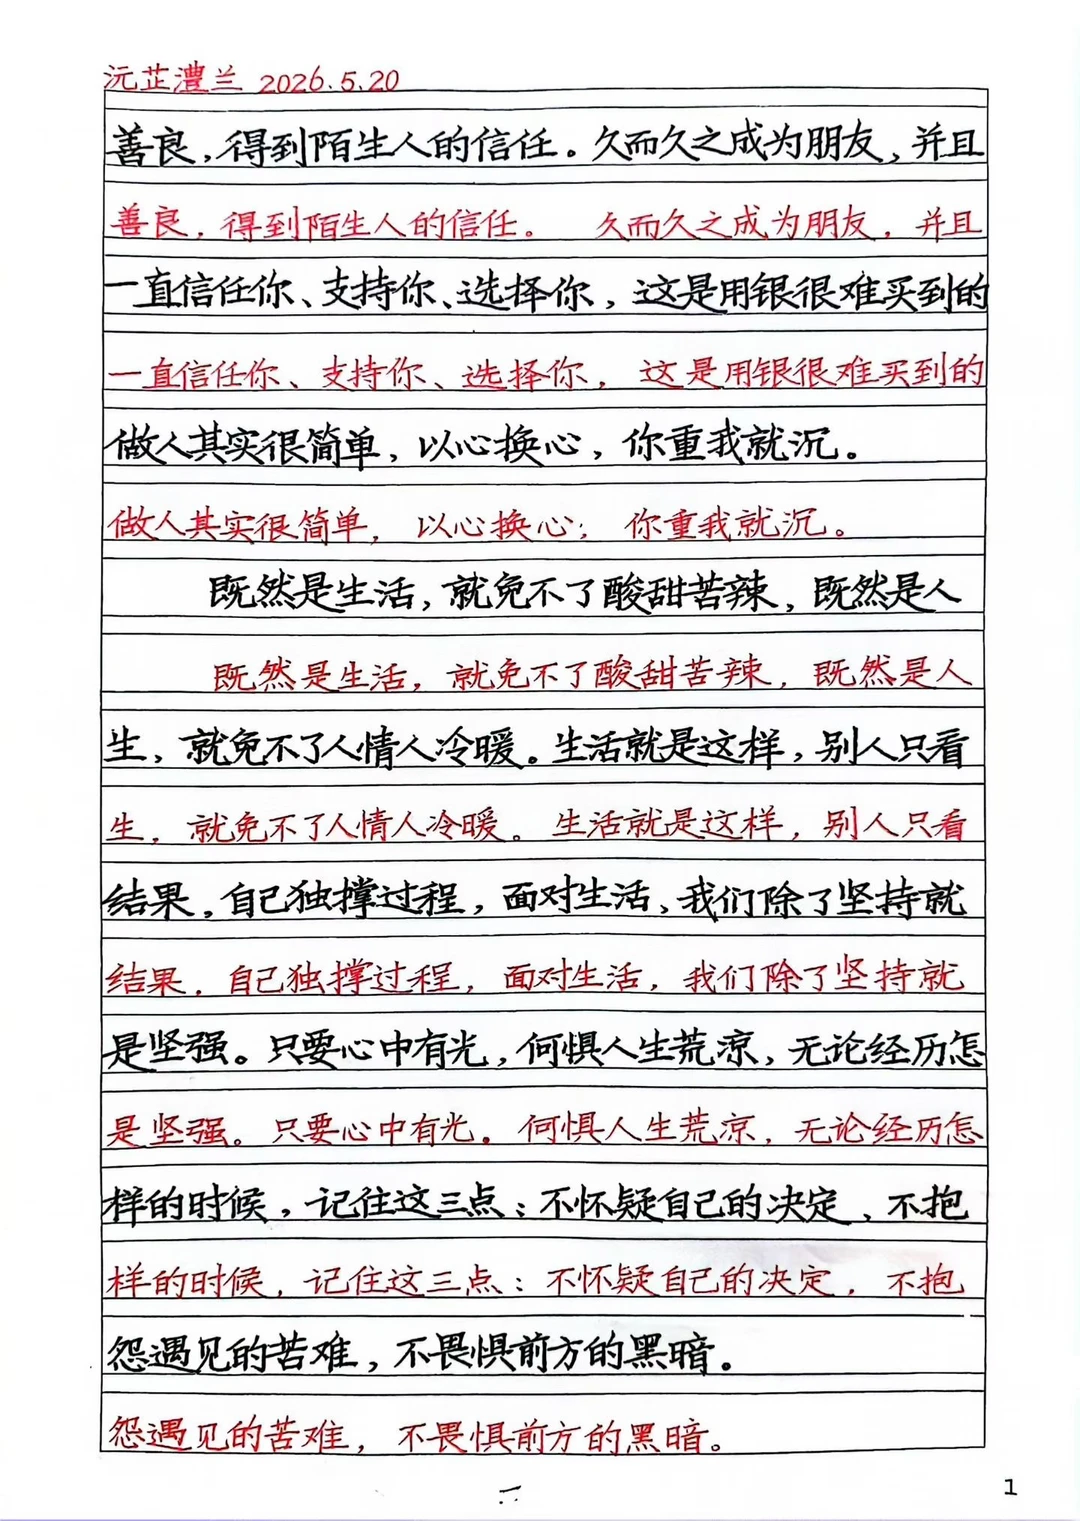 沅芷澧兰 2026.5.20
善良，得到陌生人的信任。久而久之成为朋友，并且
善良，得到陌生人的信任。 久而久之成为朋友，并且
一直信任你、支持你、选择你，这是用银很难买到的
一直信任你、支持你、选择你，这是用银很难买到的
做人其实很简单，以心换心，你重我就沉。
做人其实很简单，以心换心；你重我就沉。
既然是生活，就免不了酸甜苦辣，既然是人
既然是生活，就免不了酸甜苦辣，既然是人
生，就免不了人情人冷暖。生活就是这样，别人只看
生，就免不了人情人冷暖。生活就是这样，别人只看
结果，自己独撑过程，面对生活，我们除了坚持就
结果，自己独撑过程，面对生活，我们除了坚持就
是坚强。只要心中有光，何惧人生荒凉，无论经历怎
是坚强。只要心中有光。何惧人生荒凉，无论经历怎
样的时候，记住这三点：不怀疑自己的决定、不抱
样的时候，记住这三点：不怀疑自己的决定，不抱
怨遇见的苦难，不畏惧前方的黑暗。
怨遇见的苦难，不畏惧前方的黑暗。
1